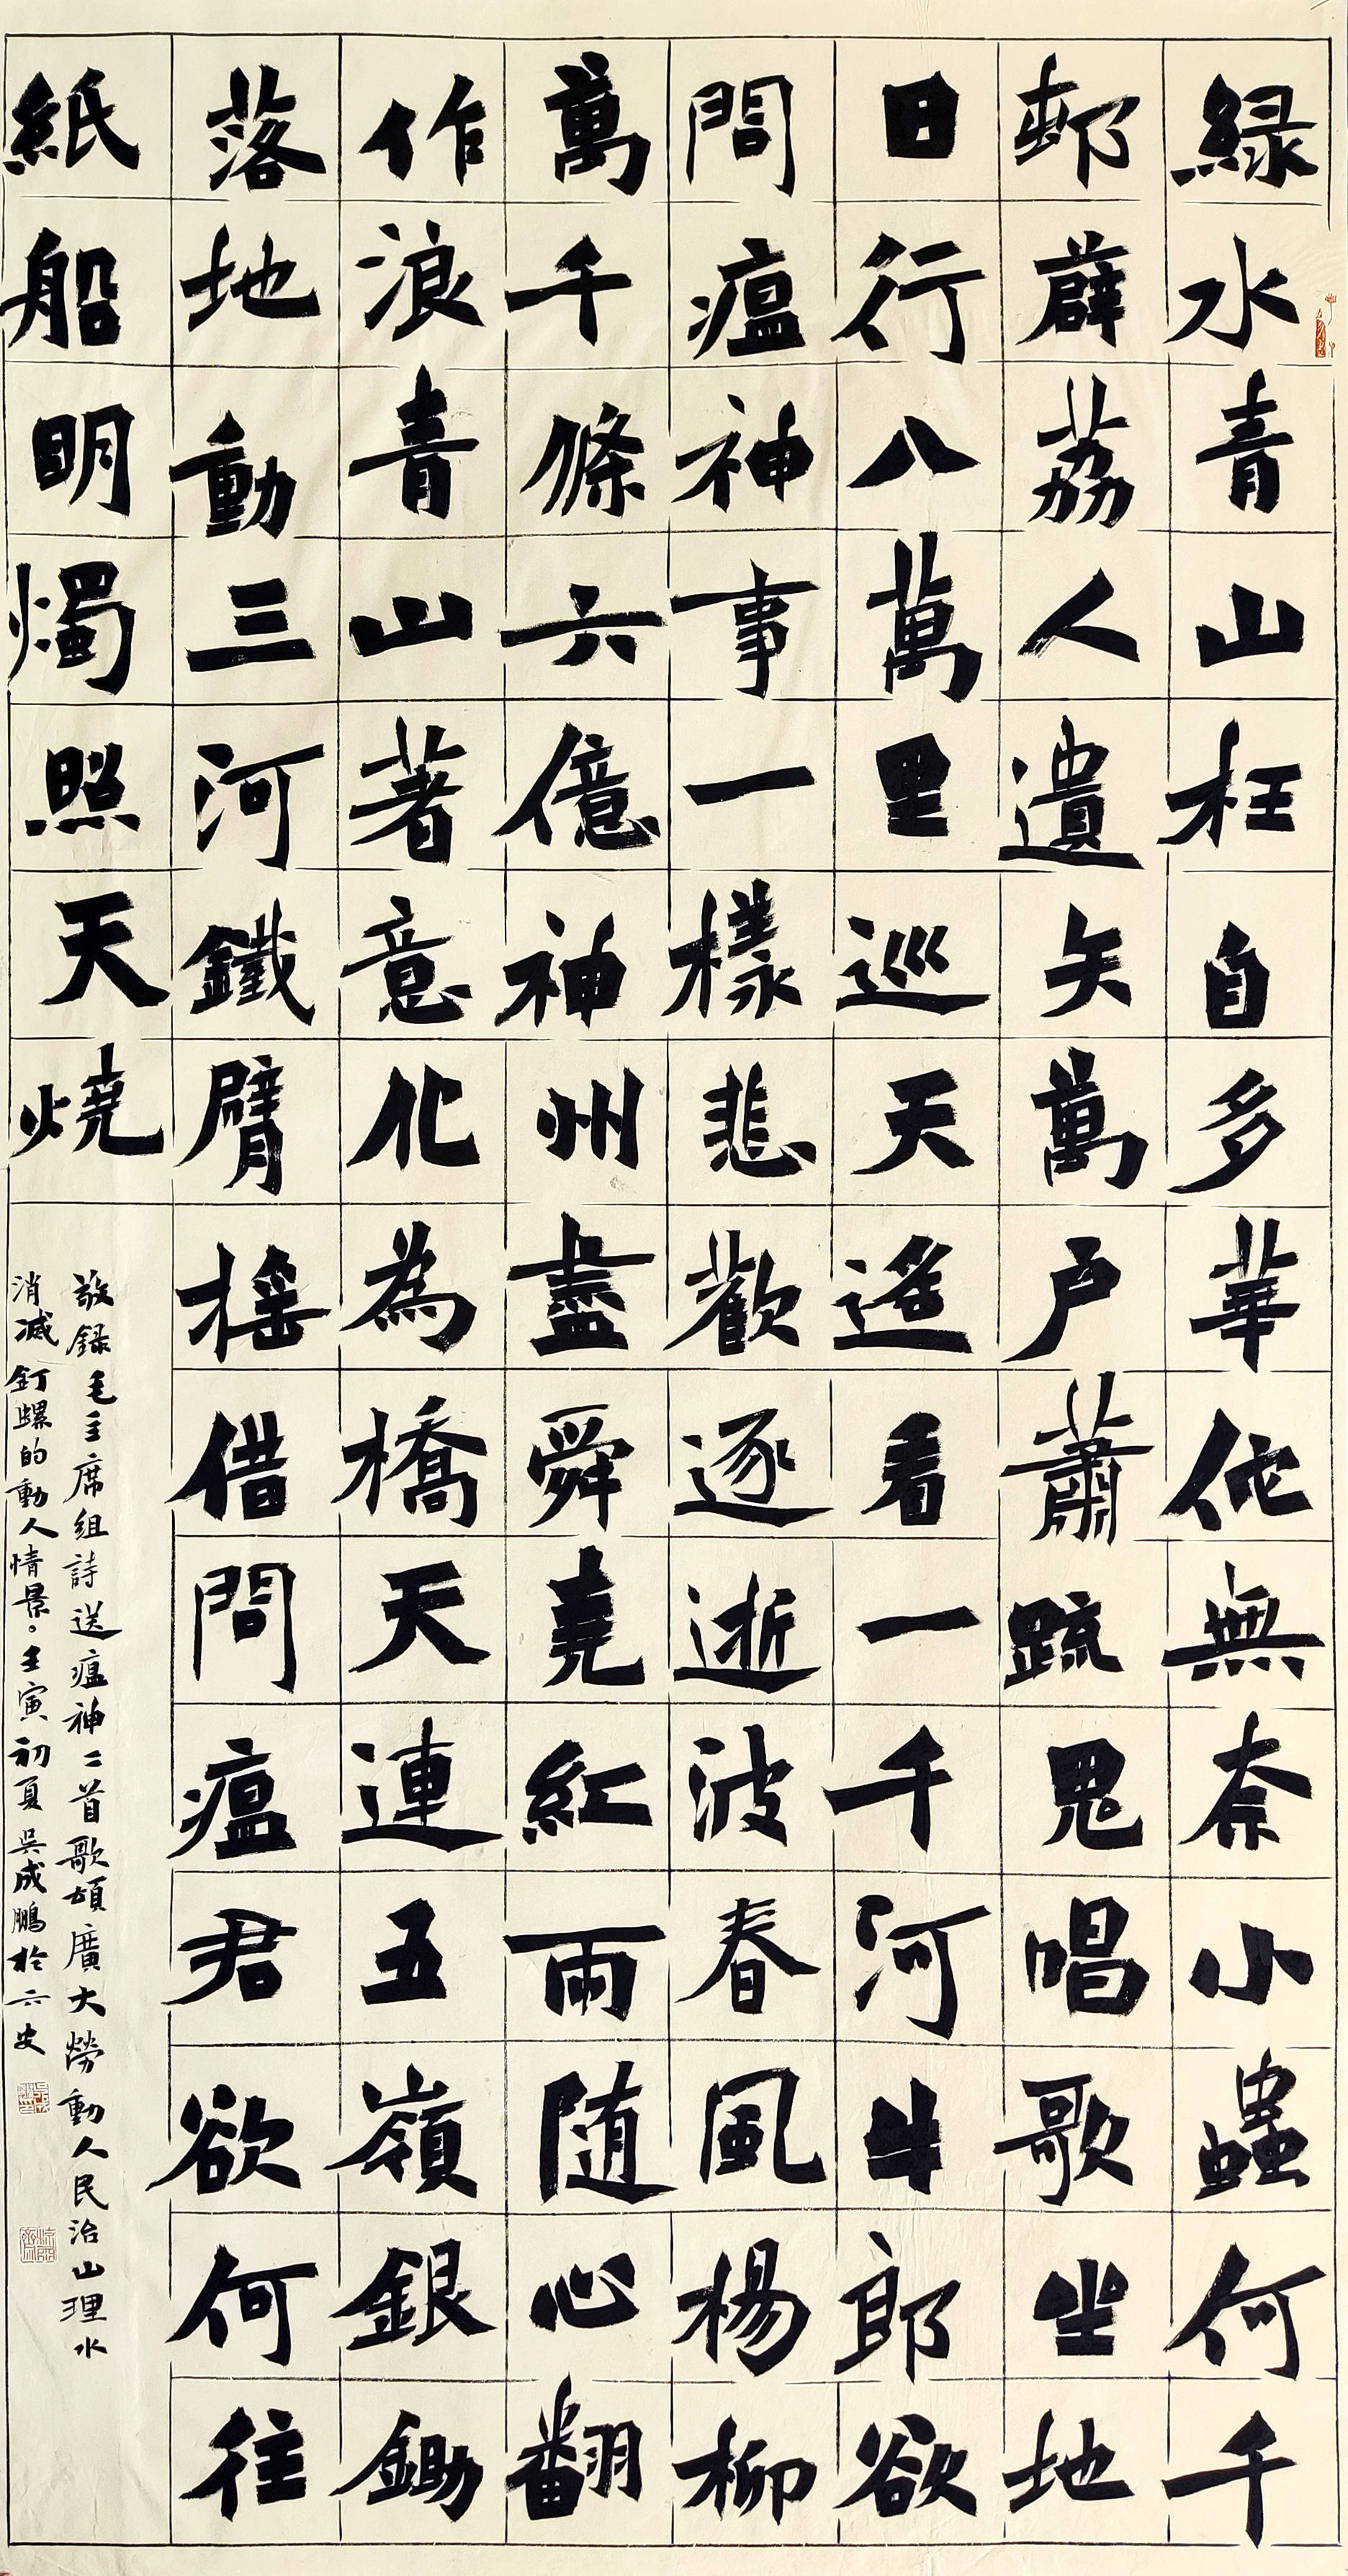 緑水青山枉自多華佗無奈小蟲何千
邨薜荔人遺矢萬戶蕭疏鬼唱歌坐地
日行八萬里巡天遙看一千河牛郎欲
問瘟神事一樣悲歡逐逝波春風楊柳
萬千條六億神州盡舜堯紅雨随心翻
作浪青山著意化為橋天連五嶺銀鋤
落地動三河鐵臂搖借問瘟君欲何往
紙船明燭照天燒
敬録毛主席組詩送瘟神二首歌頌廣大勞動人民治山理水
消滅釘螺的動人情景。壬寅初夏吳成鵬於六安